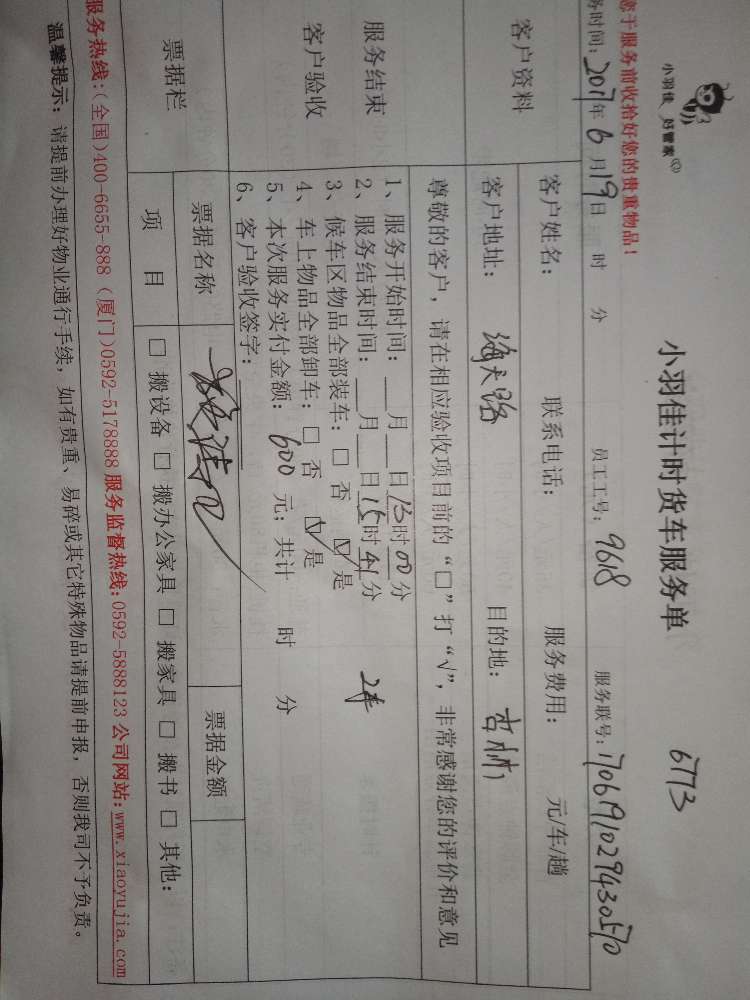 小羽佳 好管家
小羽佳计时货车服务单
6773
您于服务前收拾好您的贵重物品!
务时间: 2017年6月19日 时 分 员工工号: 9618 服务联号: 1706191029430570
客户资料
客户姓名: 联系电话: 服务费用: 元/车/趟
客户地址: 海天路 目的地: 杏林
尊敬的客户,请在相应验收项目前的“□”打“√”,非常感谢您的评价和意见
服务结束
客户验收
1、服务开始时间:___月___日13时00分
2、服务结束时间:___月___日15时41分 2车
3、候车区物品全部装车:□ 否 ☑ 是
4、车上物品全部卸车:□ 否 ☑ 是
5、本次服务实付金额:600元;共计 时 分
6、客户验收签字:
票据栏
票据名称 票据金额
项 目 □ 搬设备 □ 搬办公家具 □ 搬家具 □ 搬书 □ 其他:
服务热线:(全国)400-6655-888 (厦门)0592-5178888 服务监督热线:0592-5888123 公司网站:www.xiaoyujia.com
温馨提示:请提前办理好物业通行手续,如有贵重、易碎或其它特殊物品请提前申报,否则我司不予负责。